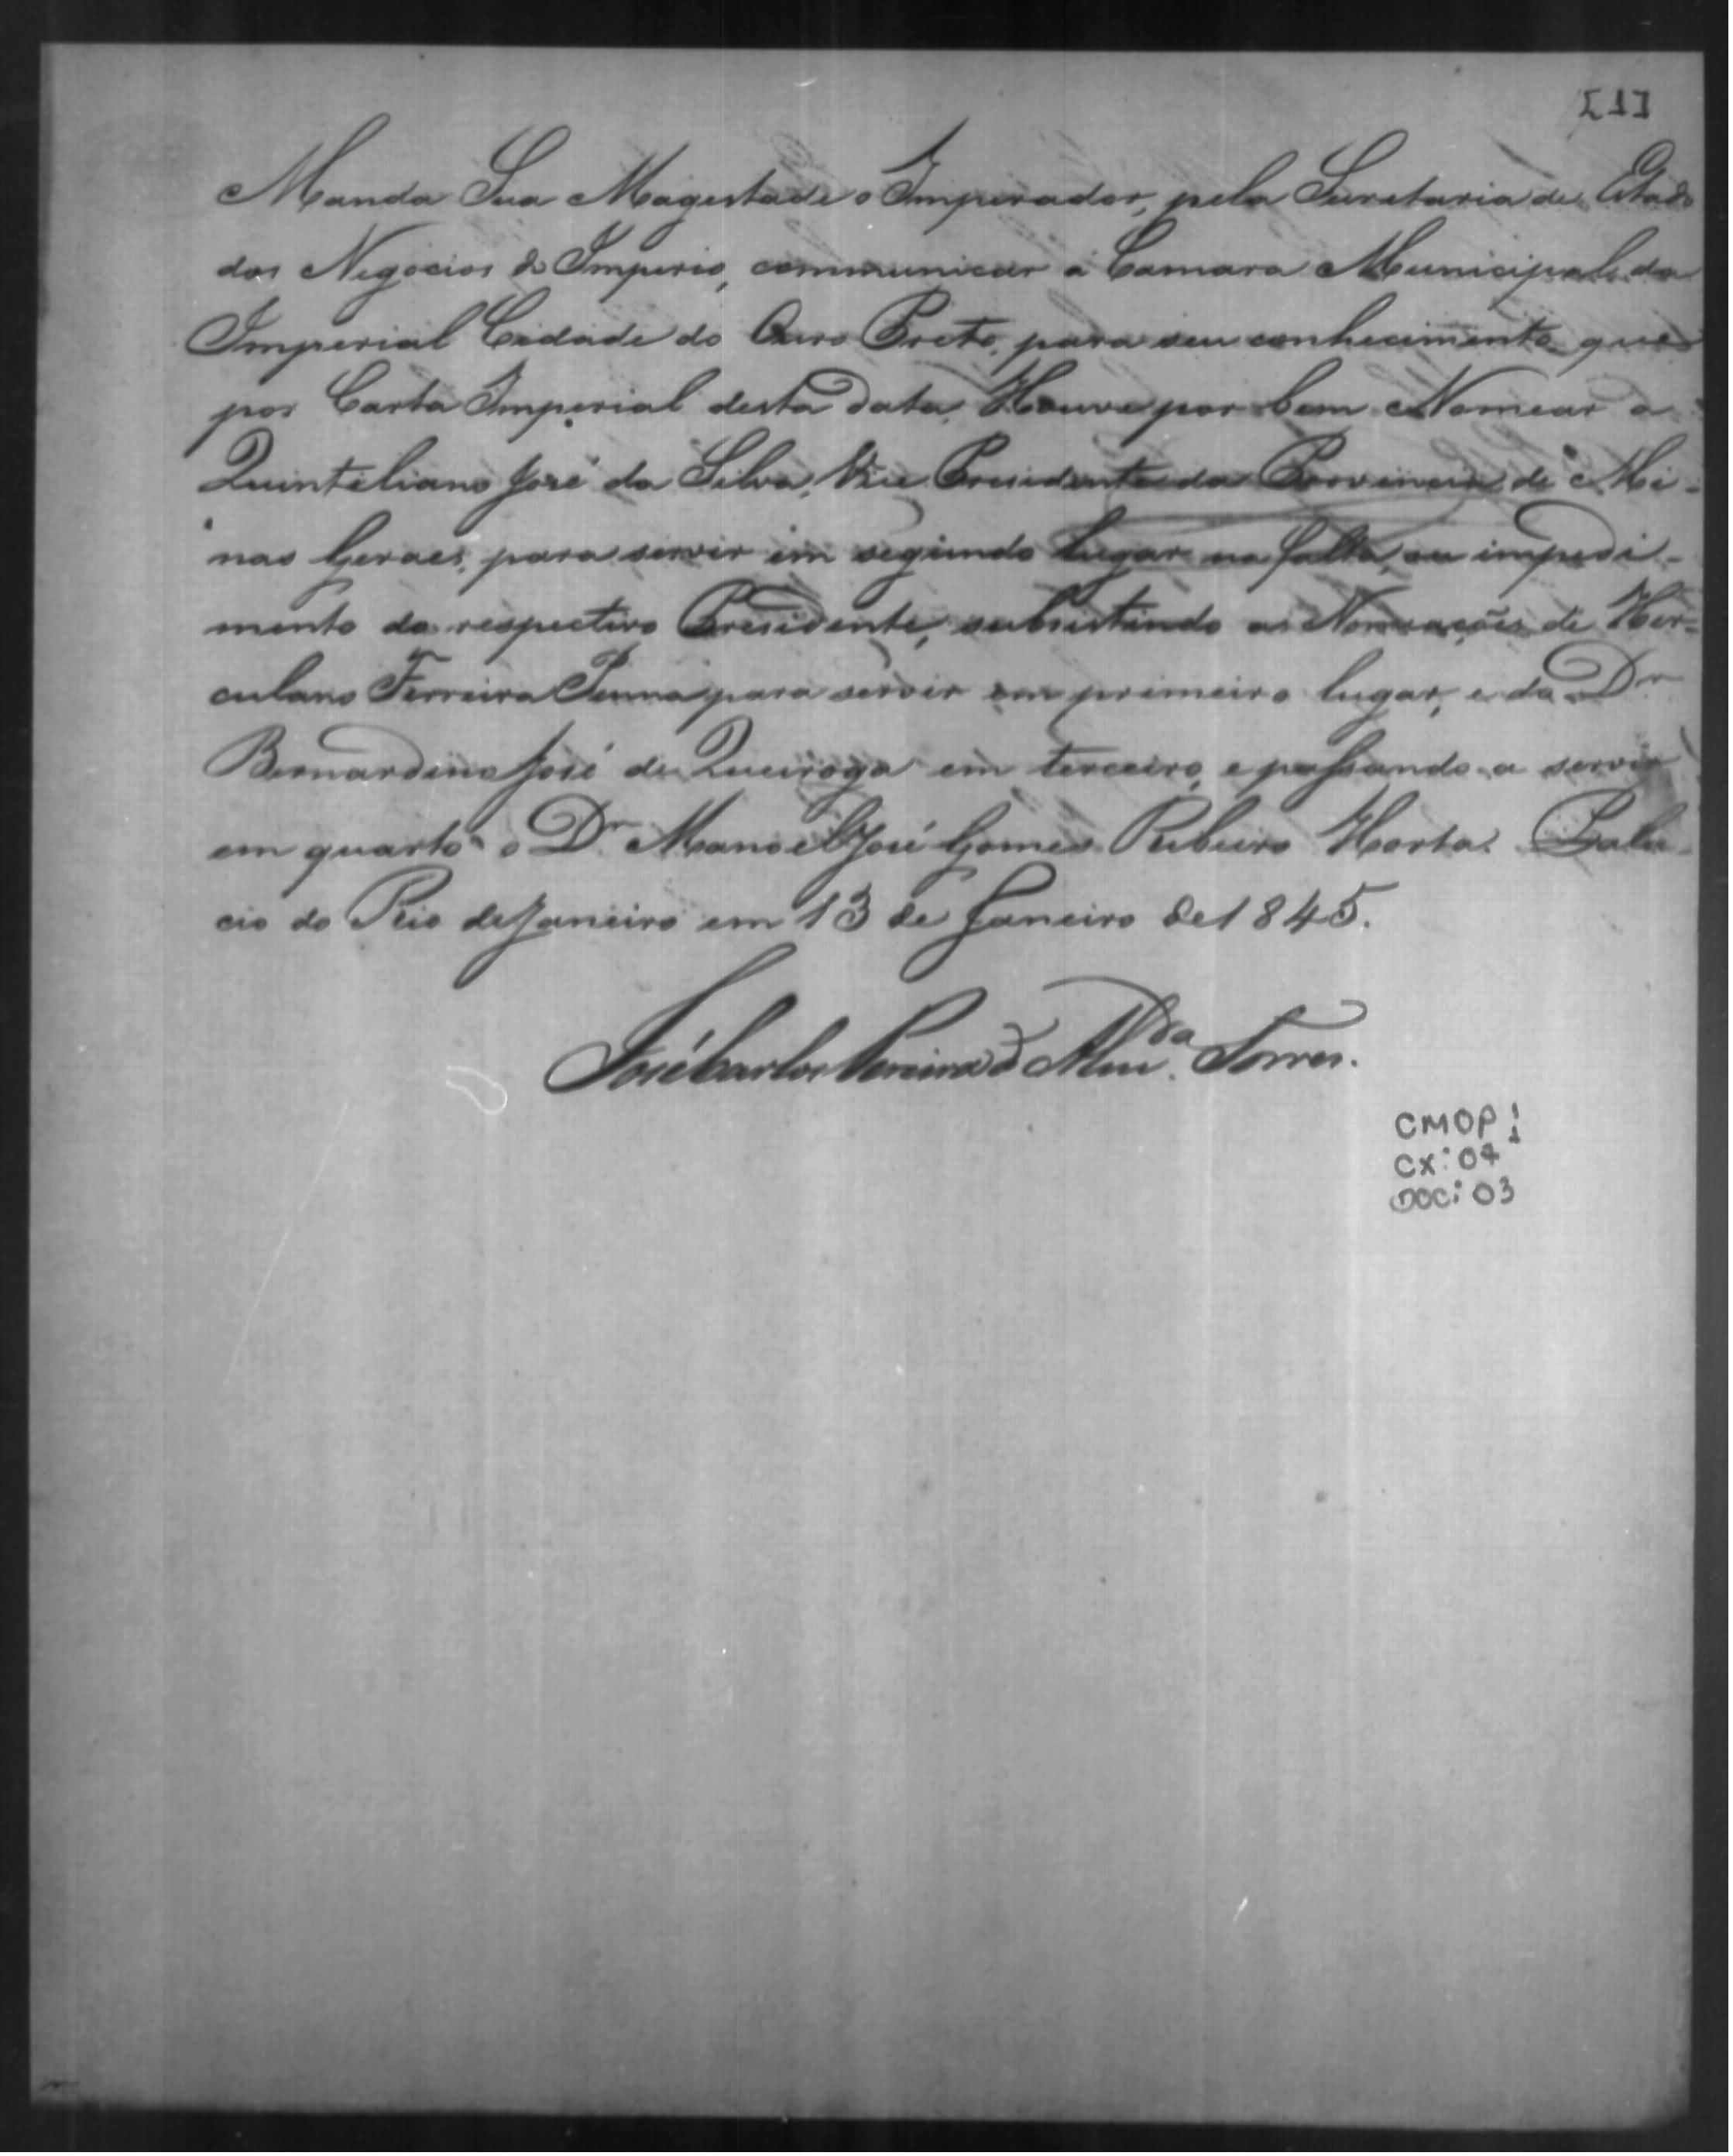 [1]
Manda Sua Magestade o Imperador, pela Secretaria de Estado
dos Negocios do Imperio, communicar á Camara Municipal da
Imperial Cidade do Ouro Preto, para seu conhecimento que
por Carta Imperial desta data, Houve por bem Nomear a
Quintiliano José da Silva, Vice Presidente da Provincia de Mi-
nas Geraes, para servir em segundo lugar na falta, ou impedi-
mento do respectivo Presidente, subsistindo as Nomeações de Her-
culano Ferreira Penna para servir em primeiro lugar, e do Dr
Bernardino José de Queiroga em terceiro, e passando a servir
em quarto o Dr Manoel José Gomes Rebello Horta. Pala-
cio do Rio de Janeiro em 13 de Janeiro de 1845.
José Carlos Pereira d'Almda Torres.
CMOP 1
CX: 04
DOC: 03